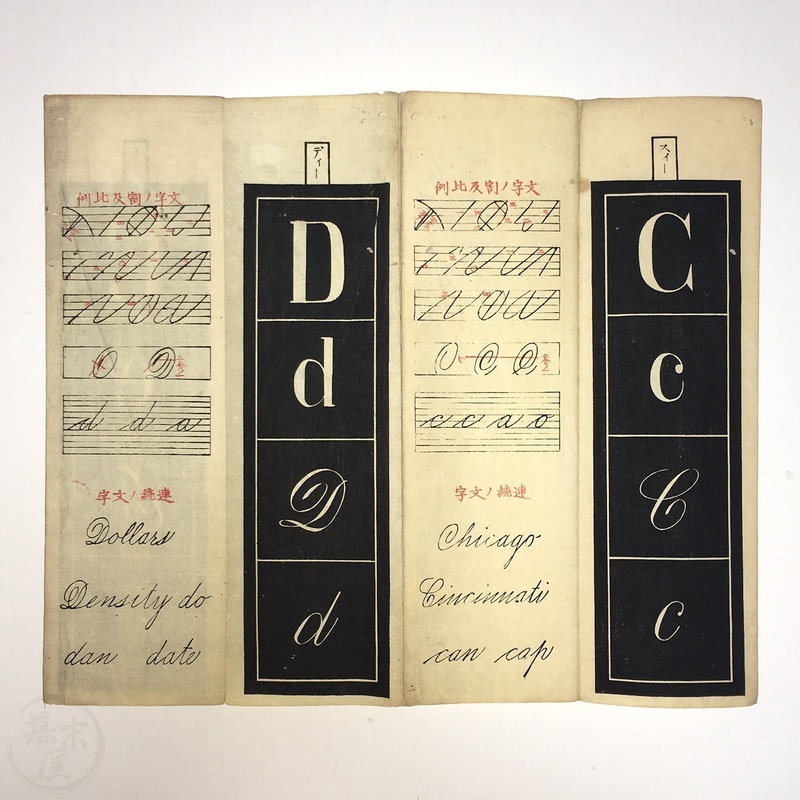 スィー
C
c
C
c
文字ノ割及比例
O C C
c c a o
連続ノ文字
Chicago
Cincinnati
can cap
ディー
D
d
D
d
文字ノ割及比例
O D
d d a
連続ノ文字
Dollars
Density do
dan date
幕末屋